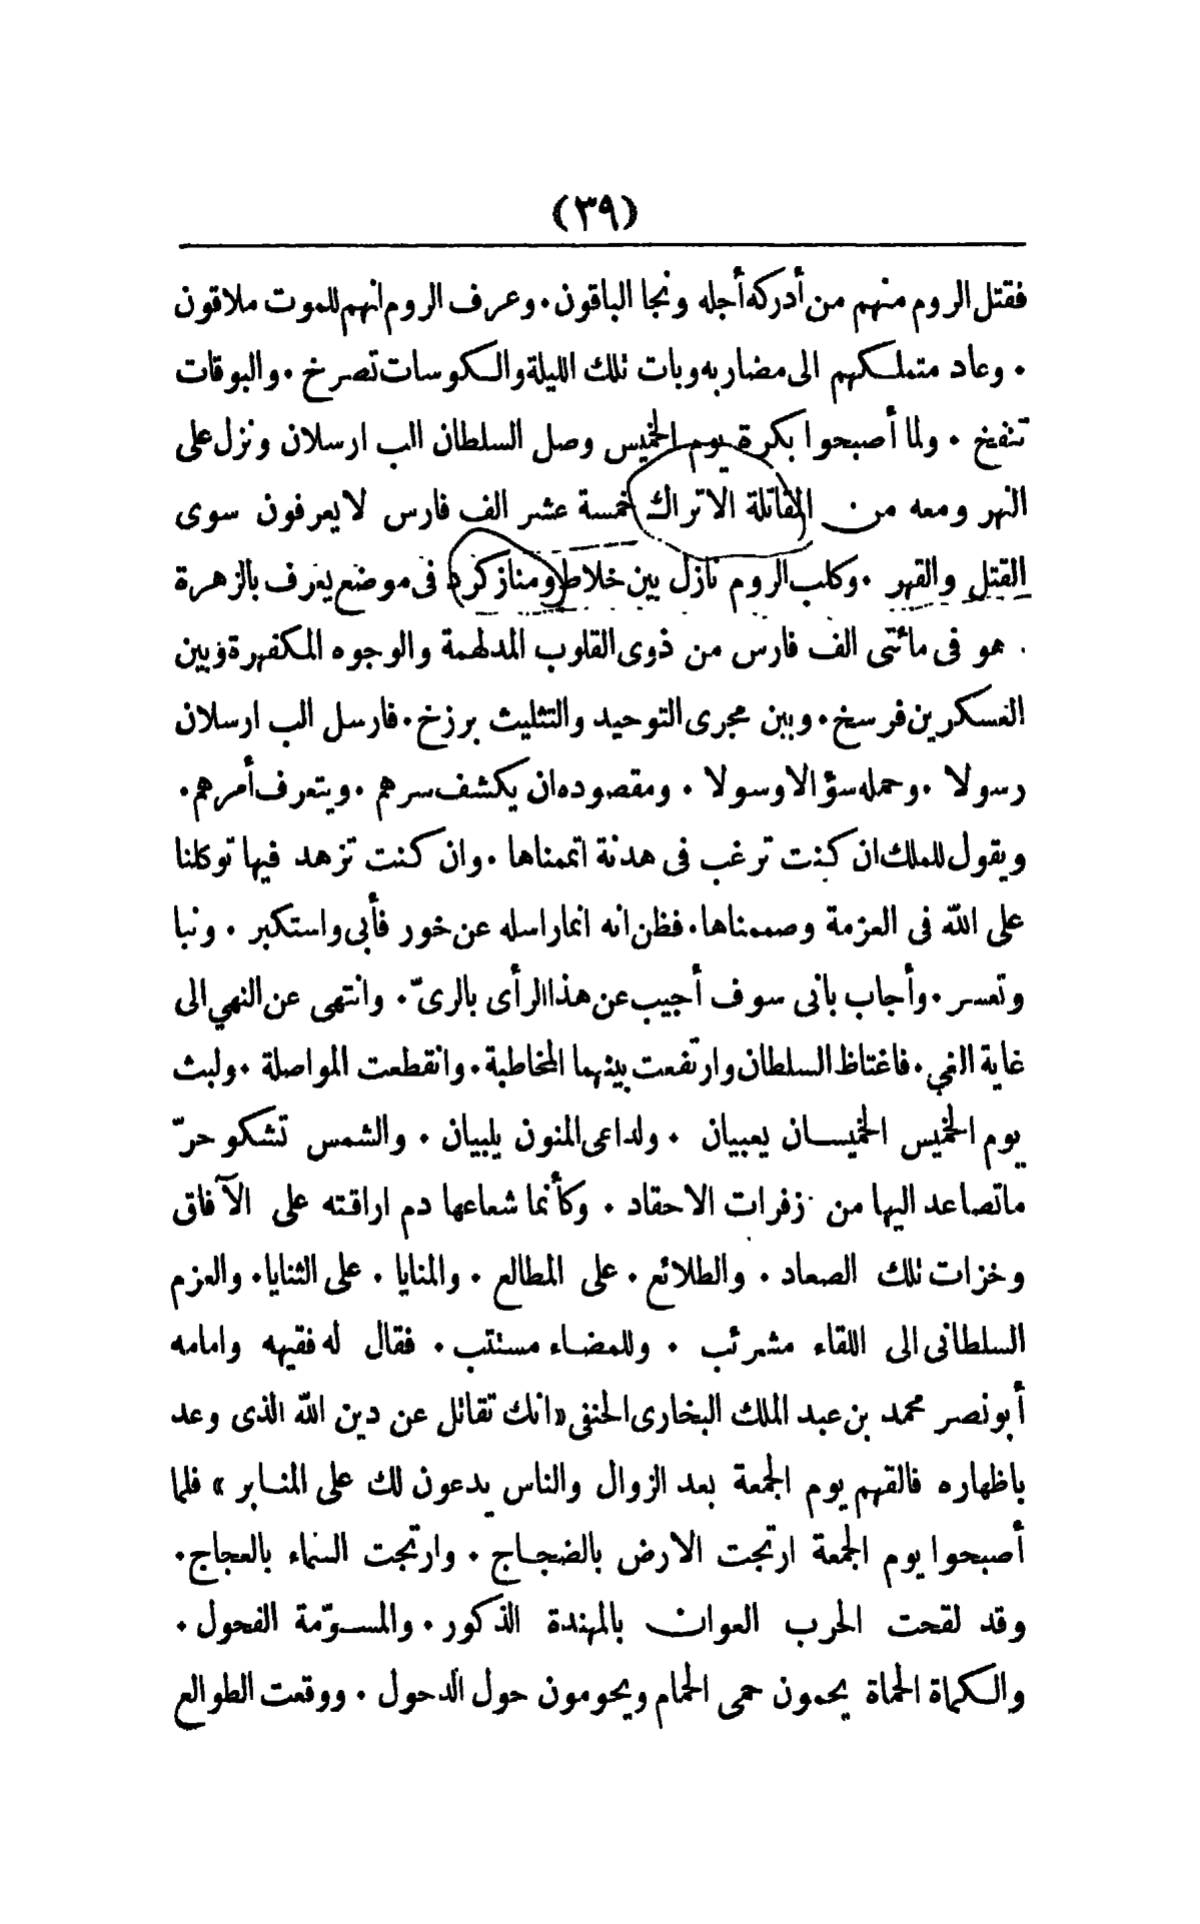 (٣٩)
فقتل الروم منهم من أدركه أجله ونجا الباقون٠ وعرف الروم انهم للموت ملاقون
٠ وعاد متملكهم الى مضاربه وبات تلك الليلة والكوسات تصرخ ٠ والبوقات
تنفخ ٠ ولما أصبحوا بكرة يوم الخميس وصل السلطان الب ارسلان ونزل على
النهر ومعه من المقاتلة الاتراك خمسة عشر الف فارس لا يعرفون سوى
القتل والقهر ٠ وكلب الروم نازل بين خلاط ومنازكرد فى موضع يعرف بالزهرة
٠ هو فى مائتى الف فارس من ذوى القلوب المدلهمة والوجوه المكفهرة وبين
العسكرين فرسخ٠ وبين مجرى التوحيد والتثليث برزخ٠ فارسل الب ارسلان
رسولا ٠ وحمله سؤالا وسولا ٠ ومقصوده ان يكشف سرهم ٠ ويتعرف أمرهم٠
ويقول للملك ان كنت ترغب فى هدنة اتممناها ٠ وان كنت تزهد فيها توكلنا
على الله فى العزمة وصممناها٠ فظن انه انما راسله عن خور فأبى واستكبر ٠ ونبا
وتعسر ٠ وأجاب بانى سوف أجيب عن هذا الرأى بالرىّ ٠ وانتهى عن النهي الى
غاية الغي٠ فاغتاظ السلطان وارتفعت بينهما المخاطبة٠ وانقطعت المواصلة ٠ ولبث
يوم الخميس الخميسان يعبيان ٠ ولداعى المنون يلبيان ٠ والشمس تشكو حرّ
ما تصاعد اليها من زفرات الاحقاد ٠ وكأنما شعاعها دم اراقته على الآفاق
وخزات تلك الصعاد ٠ والطلائع ٠ على المطالع ٠ والمنايا ٠ على الثنايا٠ والعزم
السلطانى الى اللقاء مشرئب ٠ وللمضاء مستتب ٠ فقال له فقيهه وامامه
أبو نصر محمد بن عبد الملك البخارى الحنفى «انك تقاتل عن دين الله الذى وعد
باظهاره فالقهم يوم الجمعة بعد الزوال والناس يدعون لك على المنابر» فلما
أصبحوا يوم الجمعة ارتجت الارض بالضجاج ٠ وارتجت السماء بالعجاج٠
وقد لقحت الحرب العوان بالمهندة الذكور ٠ والمسوّمة الفحول ٠
والكماة الحماة يحمون حمى الحمام ويحومون حول الدحول ٠ ووقعت الطوالع